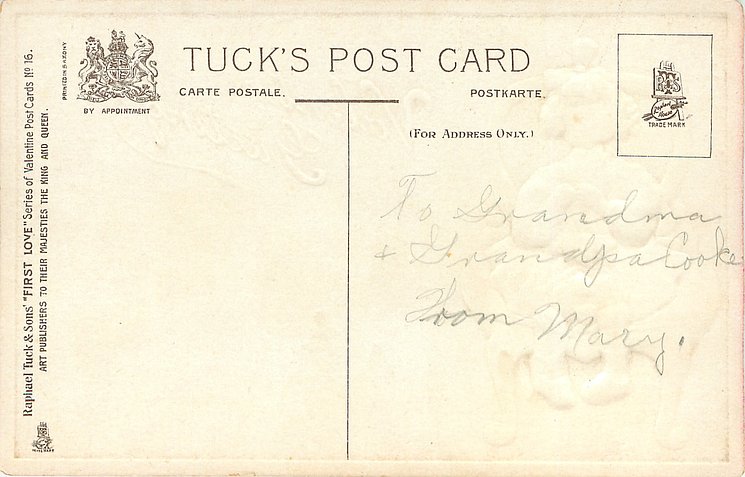 TUCK'S POST CARD
CARTE POSTALE.
POSTKARTE.
(FOR ADDRESS ONLY.)
BY APPOINTMENT
PRINTED IN SAXONY
Raphael Tuck & Sons' "FIRST LOVE" Series of Valentine Post Cards No 16.
ART PUBLISHERS TO THEIR MAJESTIES THE KING AND QUEEN.
RTS
Raphael House
TRADE MARK
To Grandma
& Grandpa Cooke
From Mary.